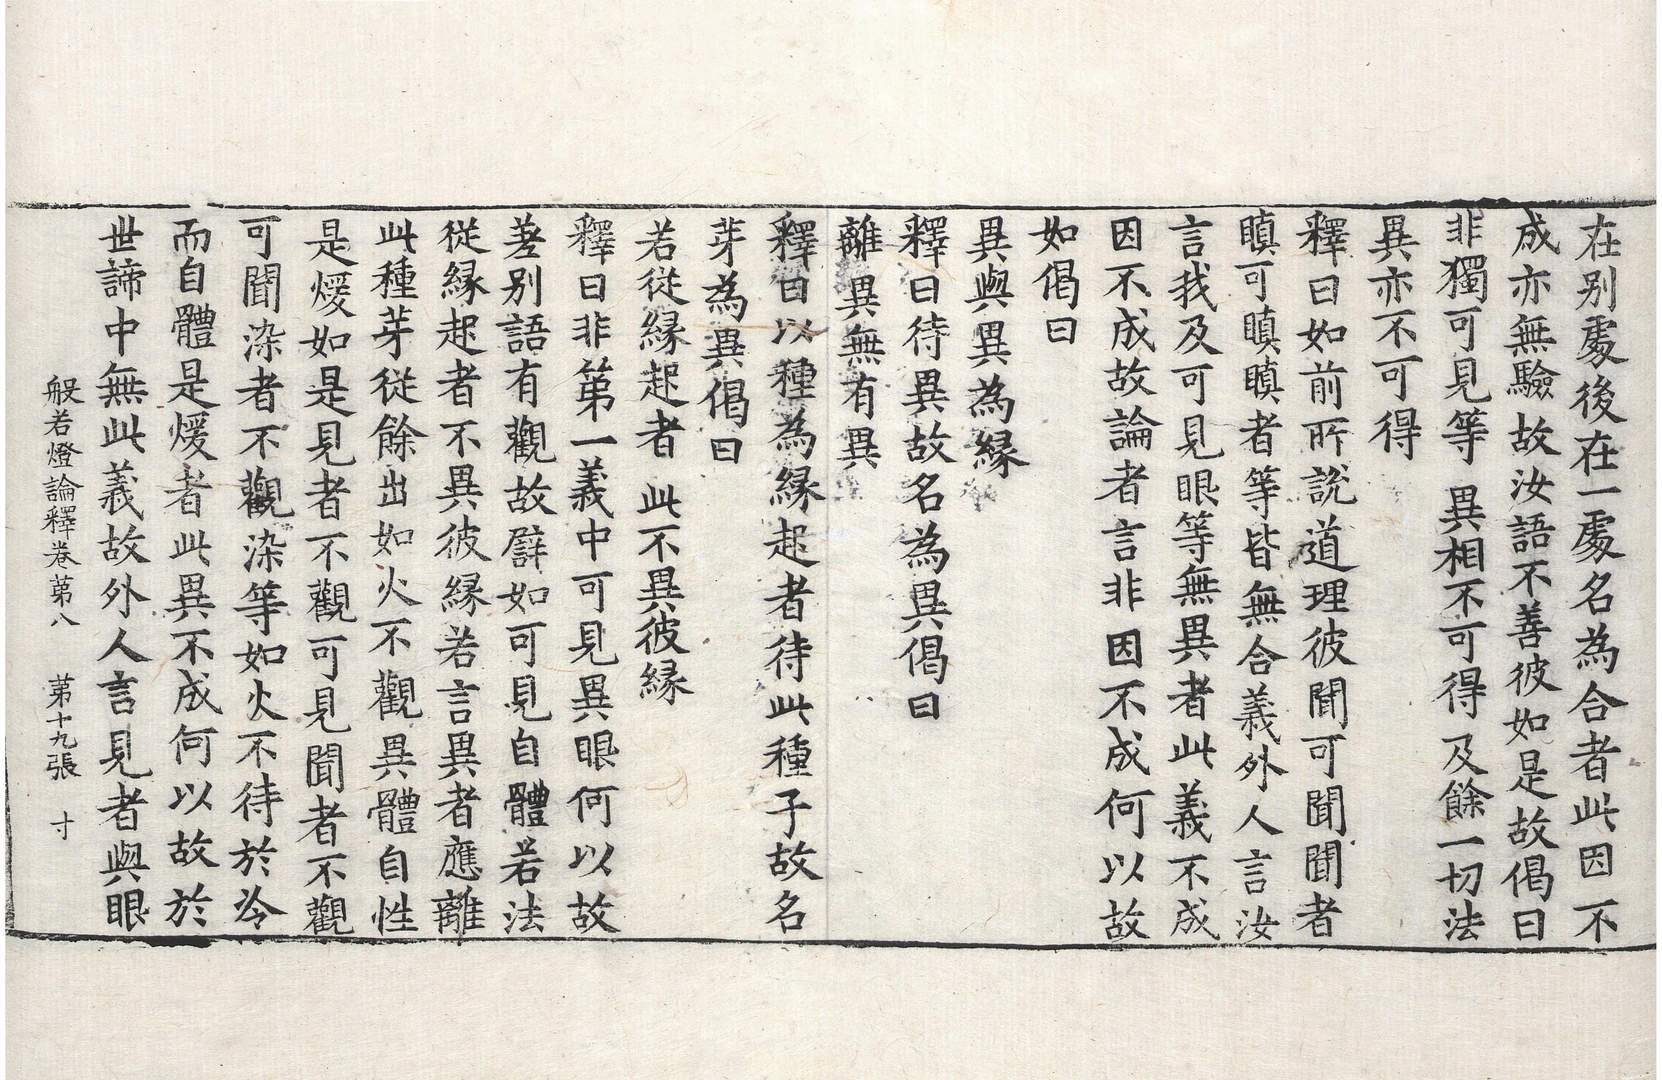 在別處後在一處名為合者此因不
成亦無驗故汝語不善彼如是故偈曰
非獨可見等 異相不可得 及餘一切法
異亦不可得
釋曰如前所說道理彼聞可聞聞者
瞋可瞋瞋者等皆無合義外人言汝
言我及可見眼等無異者此義不成
因不成故論者言非因不成何以故
如偈曰
異與異為緣
釋曰待異故名為異偈曰
離異無有異
釋曰以種為緣起者待此種子故名
芽為異偈曰
若從緣起者 此不異彼緣
釋曰非第一義中可見異眼何以故
差別語有觀故譬如可見自體若法
從緣起者不異彼緣若言異者應離
此種芽從餘出如火不觀異體自性
是煖如是見者不觀可見聞者不觀
可聞染者不觀染等如火不待於冷
而自體是煖者此異不成何以故於
世諦中無此義故外人言見者與眼
般若燈論釋卷第八 第十九張 寸